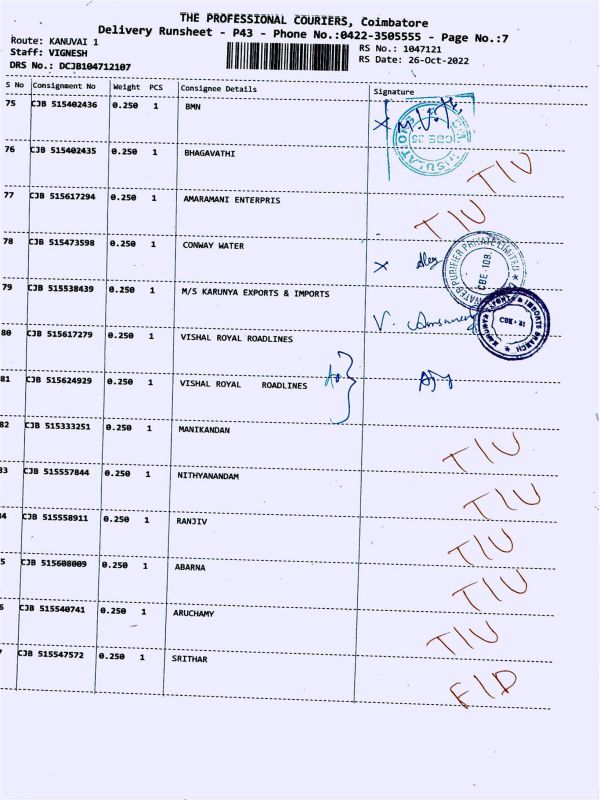 THE PROFESSIONAL COURIERS, Coimbatore
Delivery Runsheet - P43 - Phone No.:0422-3505555 - Page No.:7
Route: KANUVAI 1
RS No.: 1047121
Staff: VIGNESH
RS Date: 26-Oct-2022
DRS No.: DCJB104712107
S No Consignment No Weight PCS Consignee Details Signature
75 CJB 515402436 0.250 1 BMN
76 CJB 515402435 0.250 1 BHAGAVATHI TIU
77 CJB 515617294 0.250 1 AMARAMANI ENTERPRIS TIU
78 CJB 515473598 0.250 1 CONWAY WATER
PURIFIER PRIVATE LIMITED
CBE-108.
79 CJB 515538439 0.250 1 M/S KARUNYA EXPORTS & IMPORTS
KARUNYA EXPORT & IMPORTS BRANCH
CBE-31
80 CJB 515617279 0.250 1 VISHAL ROYAL ROADLINES
81 CJB 515624929 0.250 1 VISHAL ROYAL ROADLINES
82 CJB 515333251 0.250 1 MANIKANDAN TIU
83 CJB 515557844 0.250 1 NITHYANANDAM TIU
4 CJB 515558911 0.250 1 RANJIV TIU
5 CJB 515608009 0.250 1 ABARNA TIU
6 CJB 515540741 0.250 1 ARUCHAMY TIU
CJB 515547572 0.250 1 SRITHAR FID